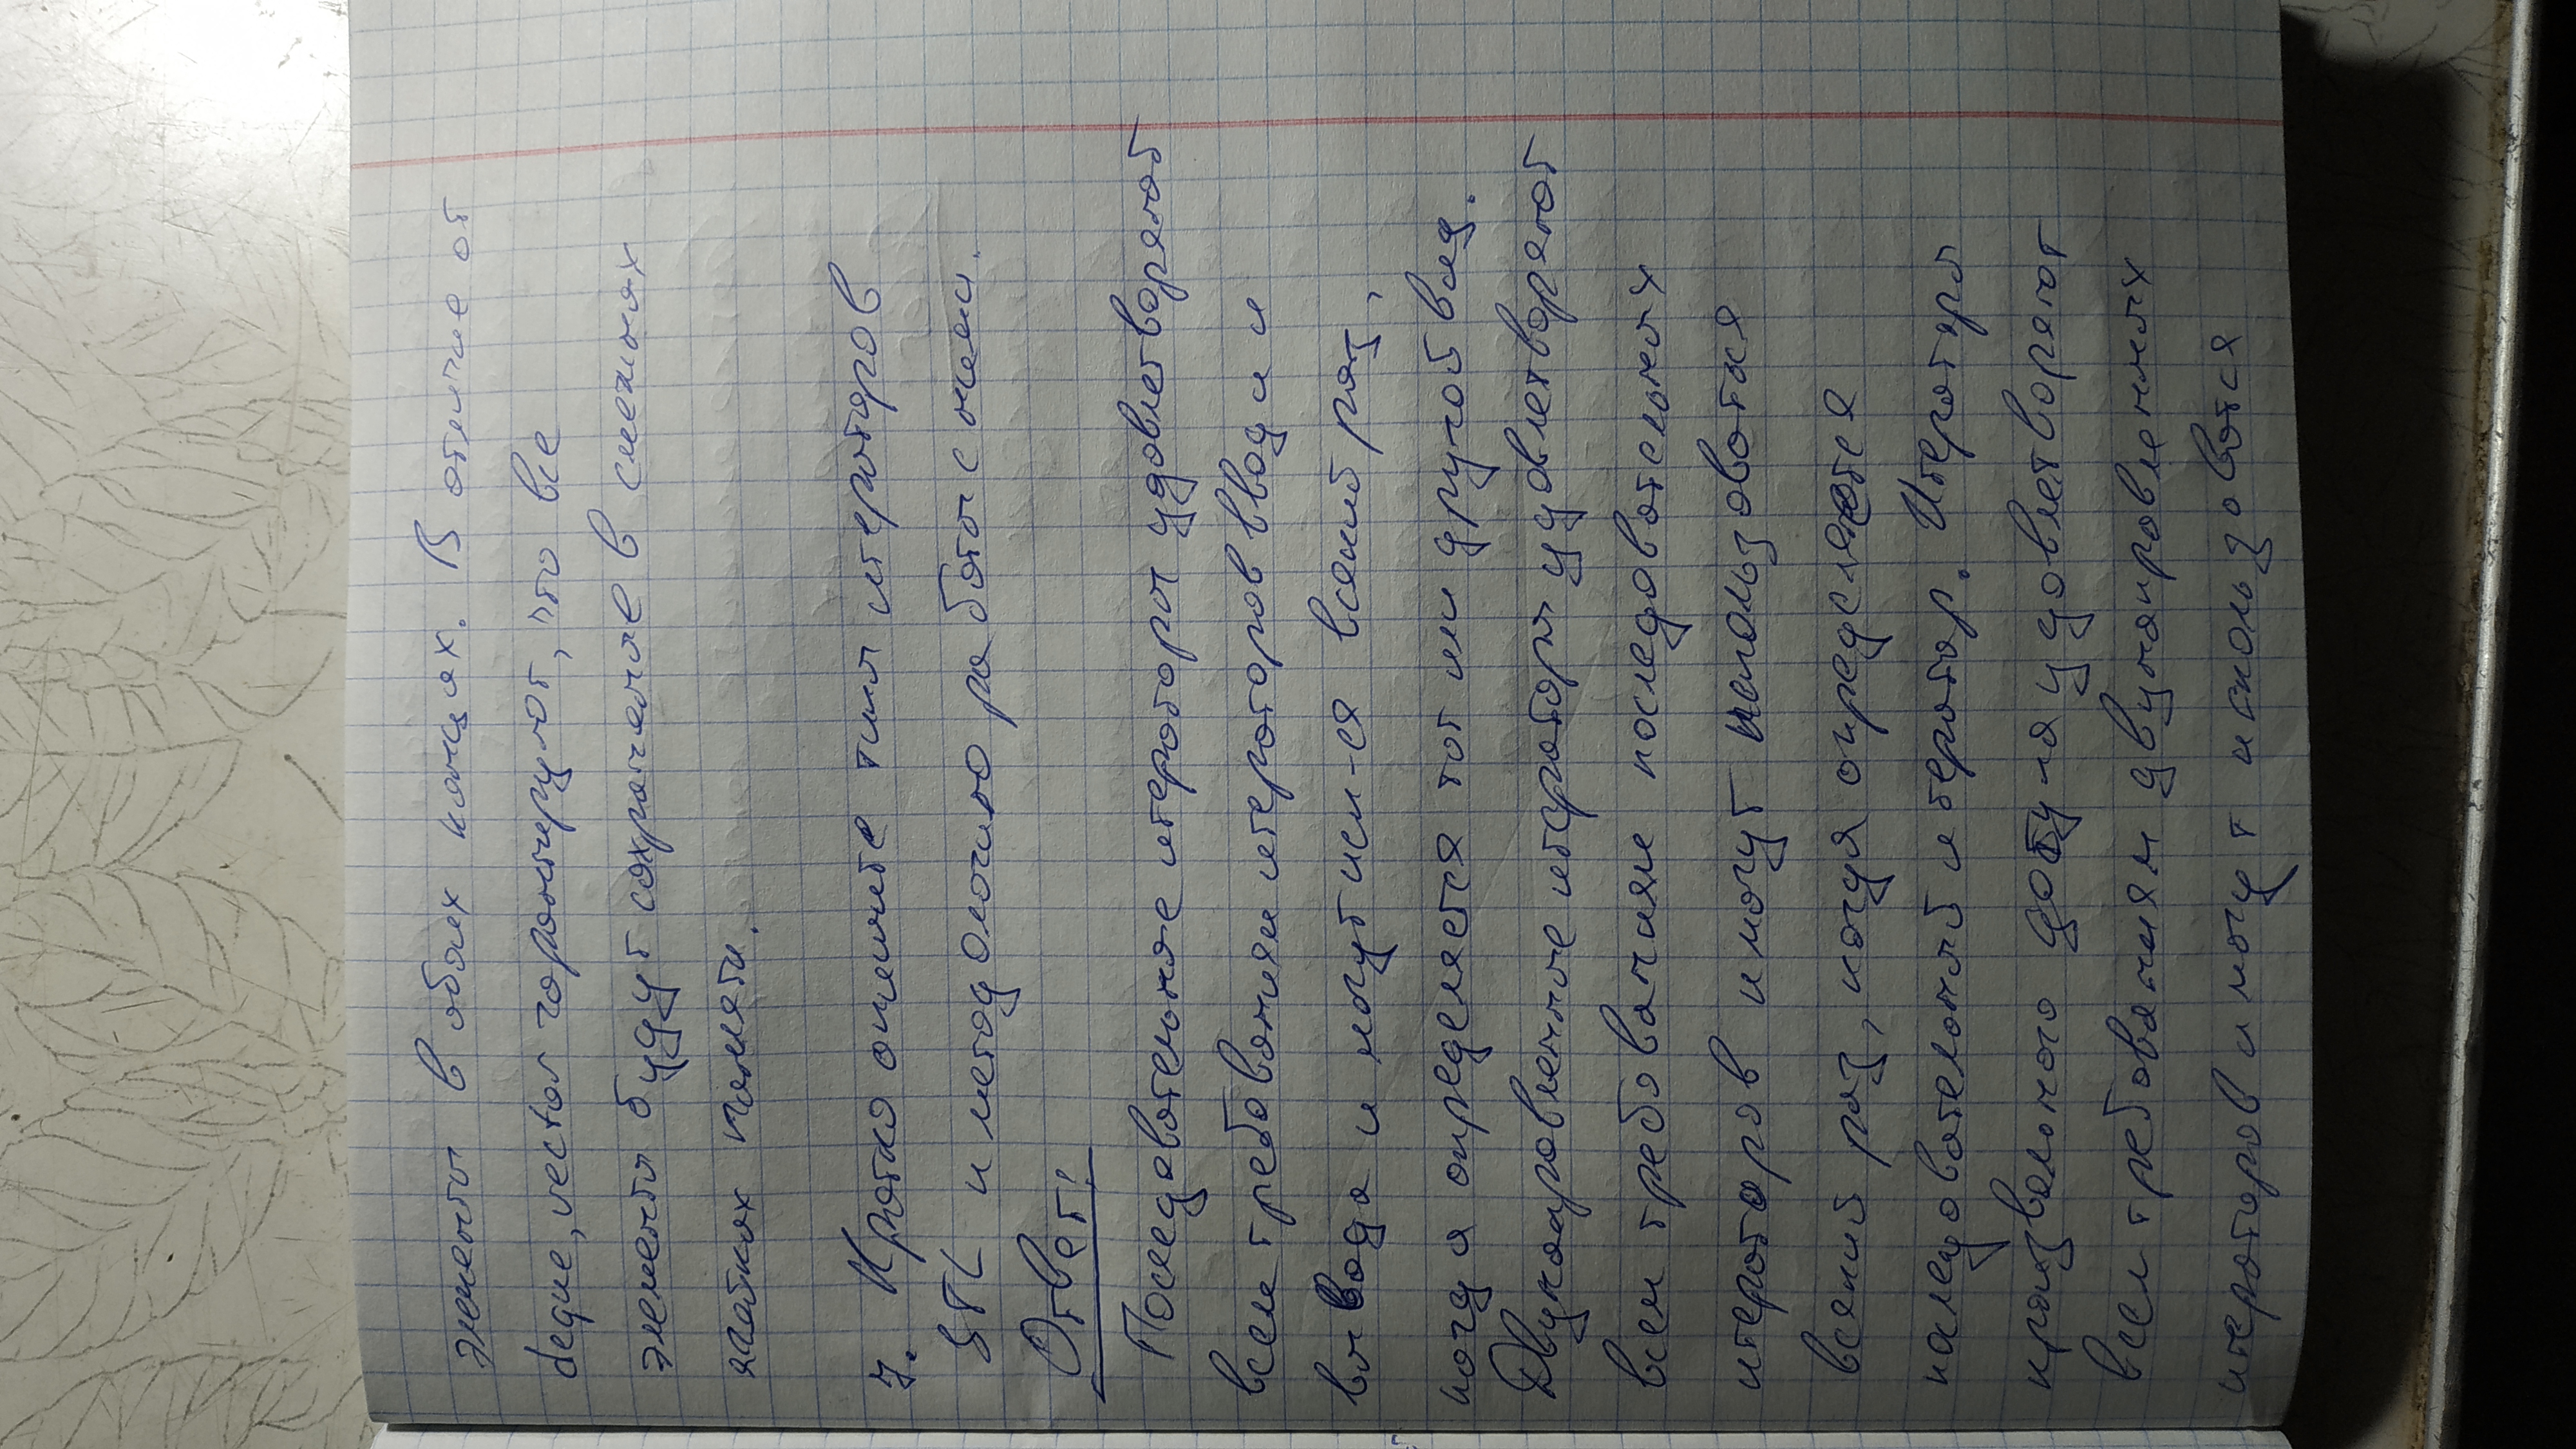 элементы в обоих концах. В отличие от
deque, vector гарантируют, что все
элементы будут сохраненые в смежных
ячейках памяти.
7. Кратко опишите типы итераторов
STL и методологию работы с ними.
Ответ:
Последовательные итераторы удовлетворяют
всем требованиям итераторов ввода и
вывода и могут исп-ся всякий раз,
когда определяется тот или другой вид.
Двунаправленные итераторы удовлетворяют
всем требованиям последовательных
итераторов и могут использоватся
всякий раз, когда определяется
последовательный итератор. Итераторы
произвольного доступа удовлетворяют
всем требованиям двунаправленных
итераторов и могут использоватся